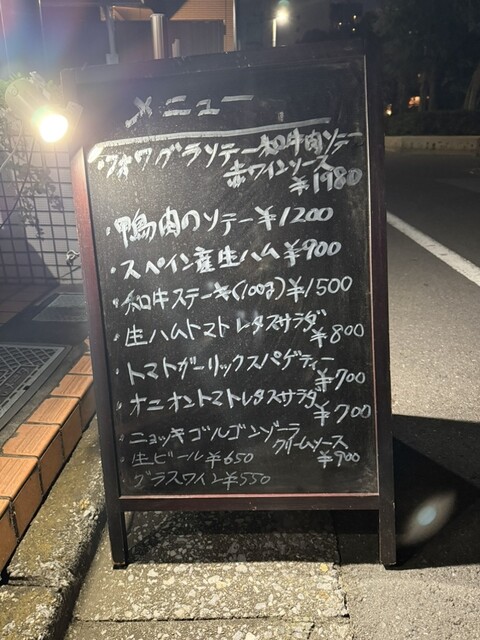 メニュー
・フォワグラソテー和牛肉ソテー
赤ワインソース
¥1980
・鴨肉のソテー¥1200
・スペイン産生ハム¥900
・和牛ステーキ(100g)¥1500
・生ハムトマトレタスサラダ
¥800
・トマトガーリックスパゲティー
¥700
・オニオントマトレタスサラダ
¥700
・ニョッキゴルゴンゾーラ
クリームソース
¥900
・生ビール¥650
・グラスワイン¥550